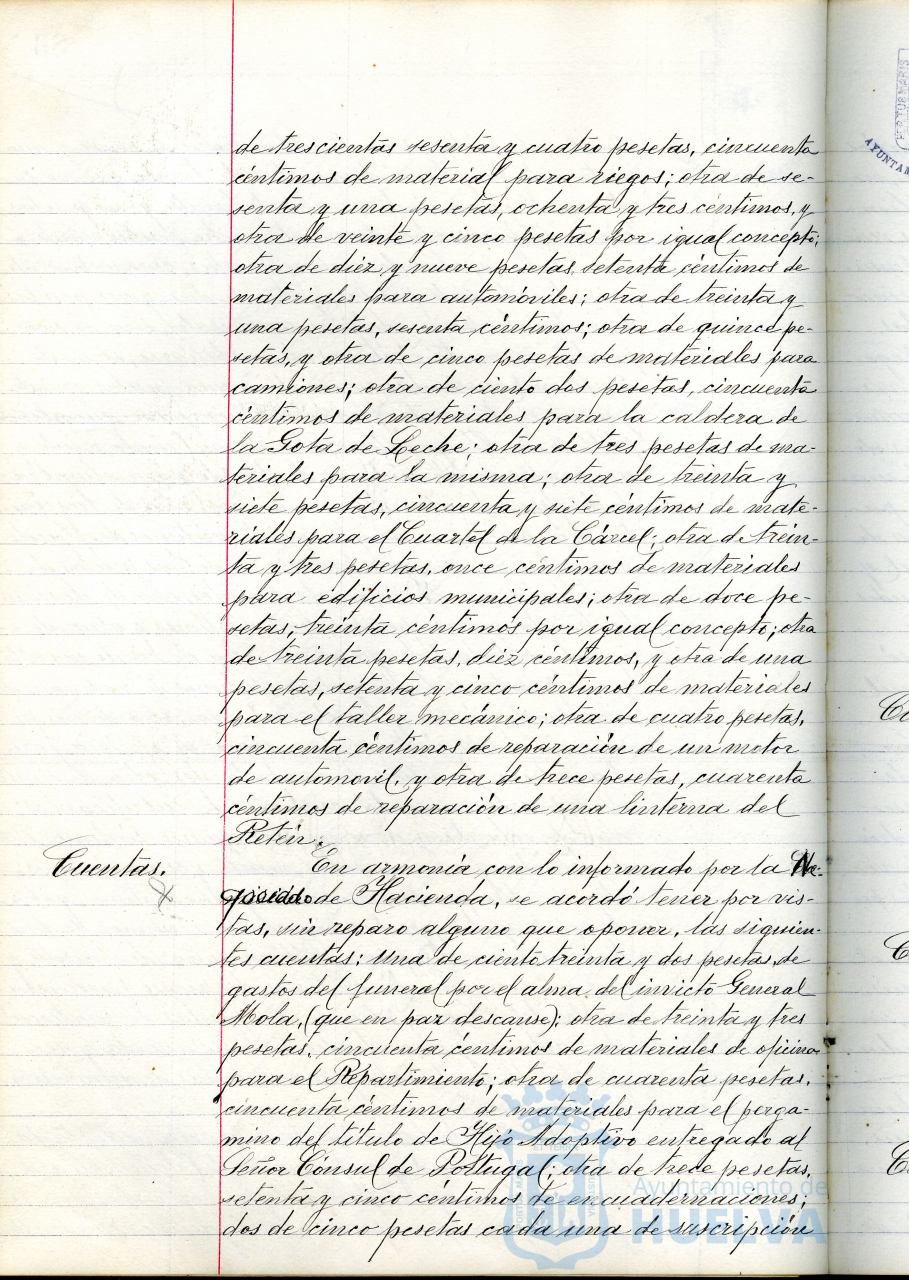 de trescientas sesenta y cuatro pesetas, cincuenta
céntimos de material para riegos; otra de se-
senta y una pesetas, ochenta y tres céntimos, y
otra de veinte y cinco pesetas por igual concepto;
otra de diez y nueve pesetas, setenta céntimos de
materiales para automóviles; otra de treinta y
una pesetas, sesenta céntimos; otra de quince pe-
setas, y otra de cinco pesetas de materiales para
camiones; otra de ciento dos pesetas, cincuenta
céntimos de materiales para la caldera de
la Gota de Leche; otra de tres pesetas de ma-
teriales para la misma; otra de treinta y
siete pesetas, cincuenta y siete céntimos de mate-
riales para el Cuartel de la Cárcel; otra de trein-
ta y tres pesetas, once céntimos de materiales
para edificios municipales; otra de doce pe-
setas, treinta céntimos por igual concepto; otra
de treinta pesetas, diez céntimos, y otra de una
pesetas, setenta y cinco céntimos de materiales
para el taller mecánico; otra de cuatro pesetas,
cincuenta céntimos de reparación de un motor
de automovil, y otra de trece pesetas, cuarenta
céntimos de reparación de una linterna del
Retén.
Cuentas.
En armonía con lo informado por la Ne-
gociado de Hacienda, se acordó tener por vis-
tas, sin reparo alguno que oponer, las siguien-
tes cuentas: una de ciento treinta y dos pesetas, de
gastos del funeral por el alma del invicto General
Mola, (que en paz descanse); otra de treinta y tres
pesetas, cincuenta céntimos de materiales de oficina
para el Repartimiento; otra de cuarenta pesetas,
cincuenta céntimos de materiales para el perga-
mino del título de Hijo Adoptivo entregado al
Señor Cónsul de Portugal; otra de trece pesetas,
setenta y cinco céntimos de encuadernaciones;
dos de cinco pesetas cada una de suscripción
Ayuntamiento de
HUELVA